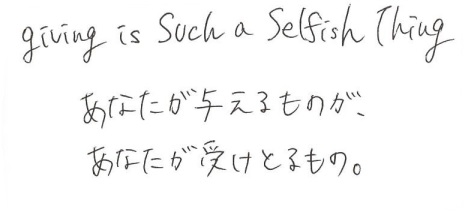 giving is Such a Selfish Thing
あなたが与えるものが、
あなたが受けとるもの。